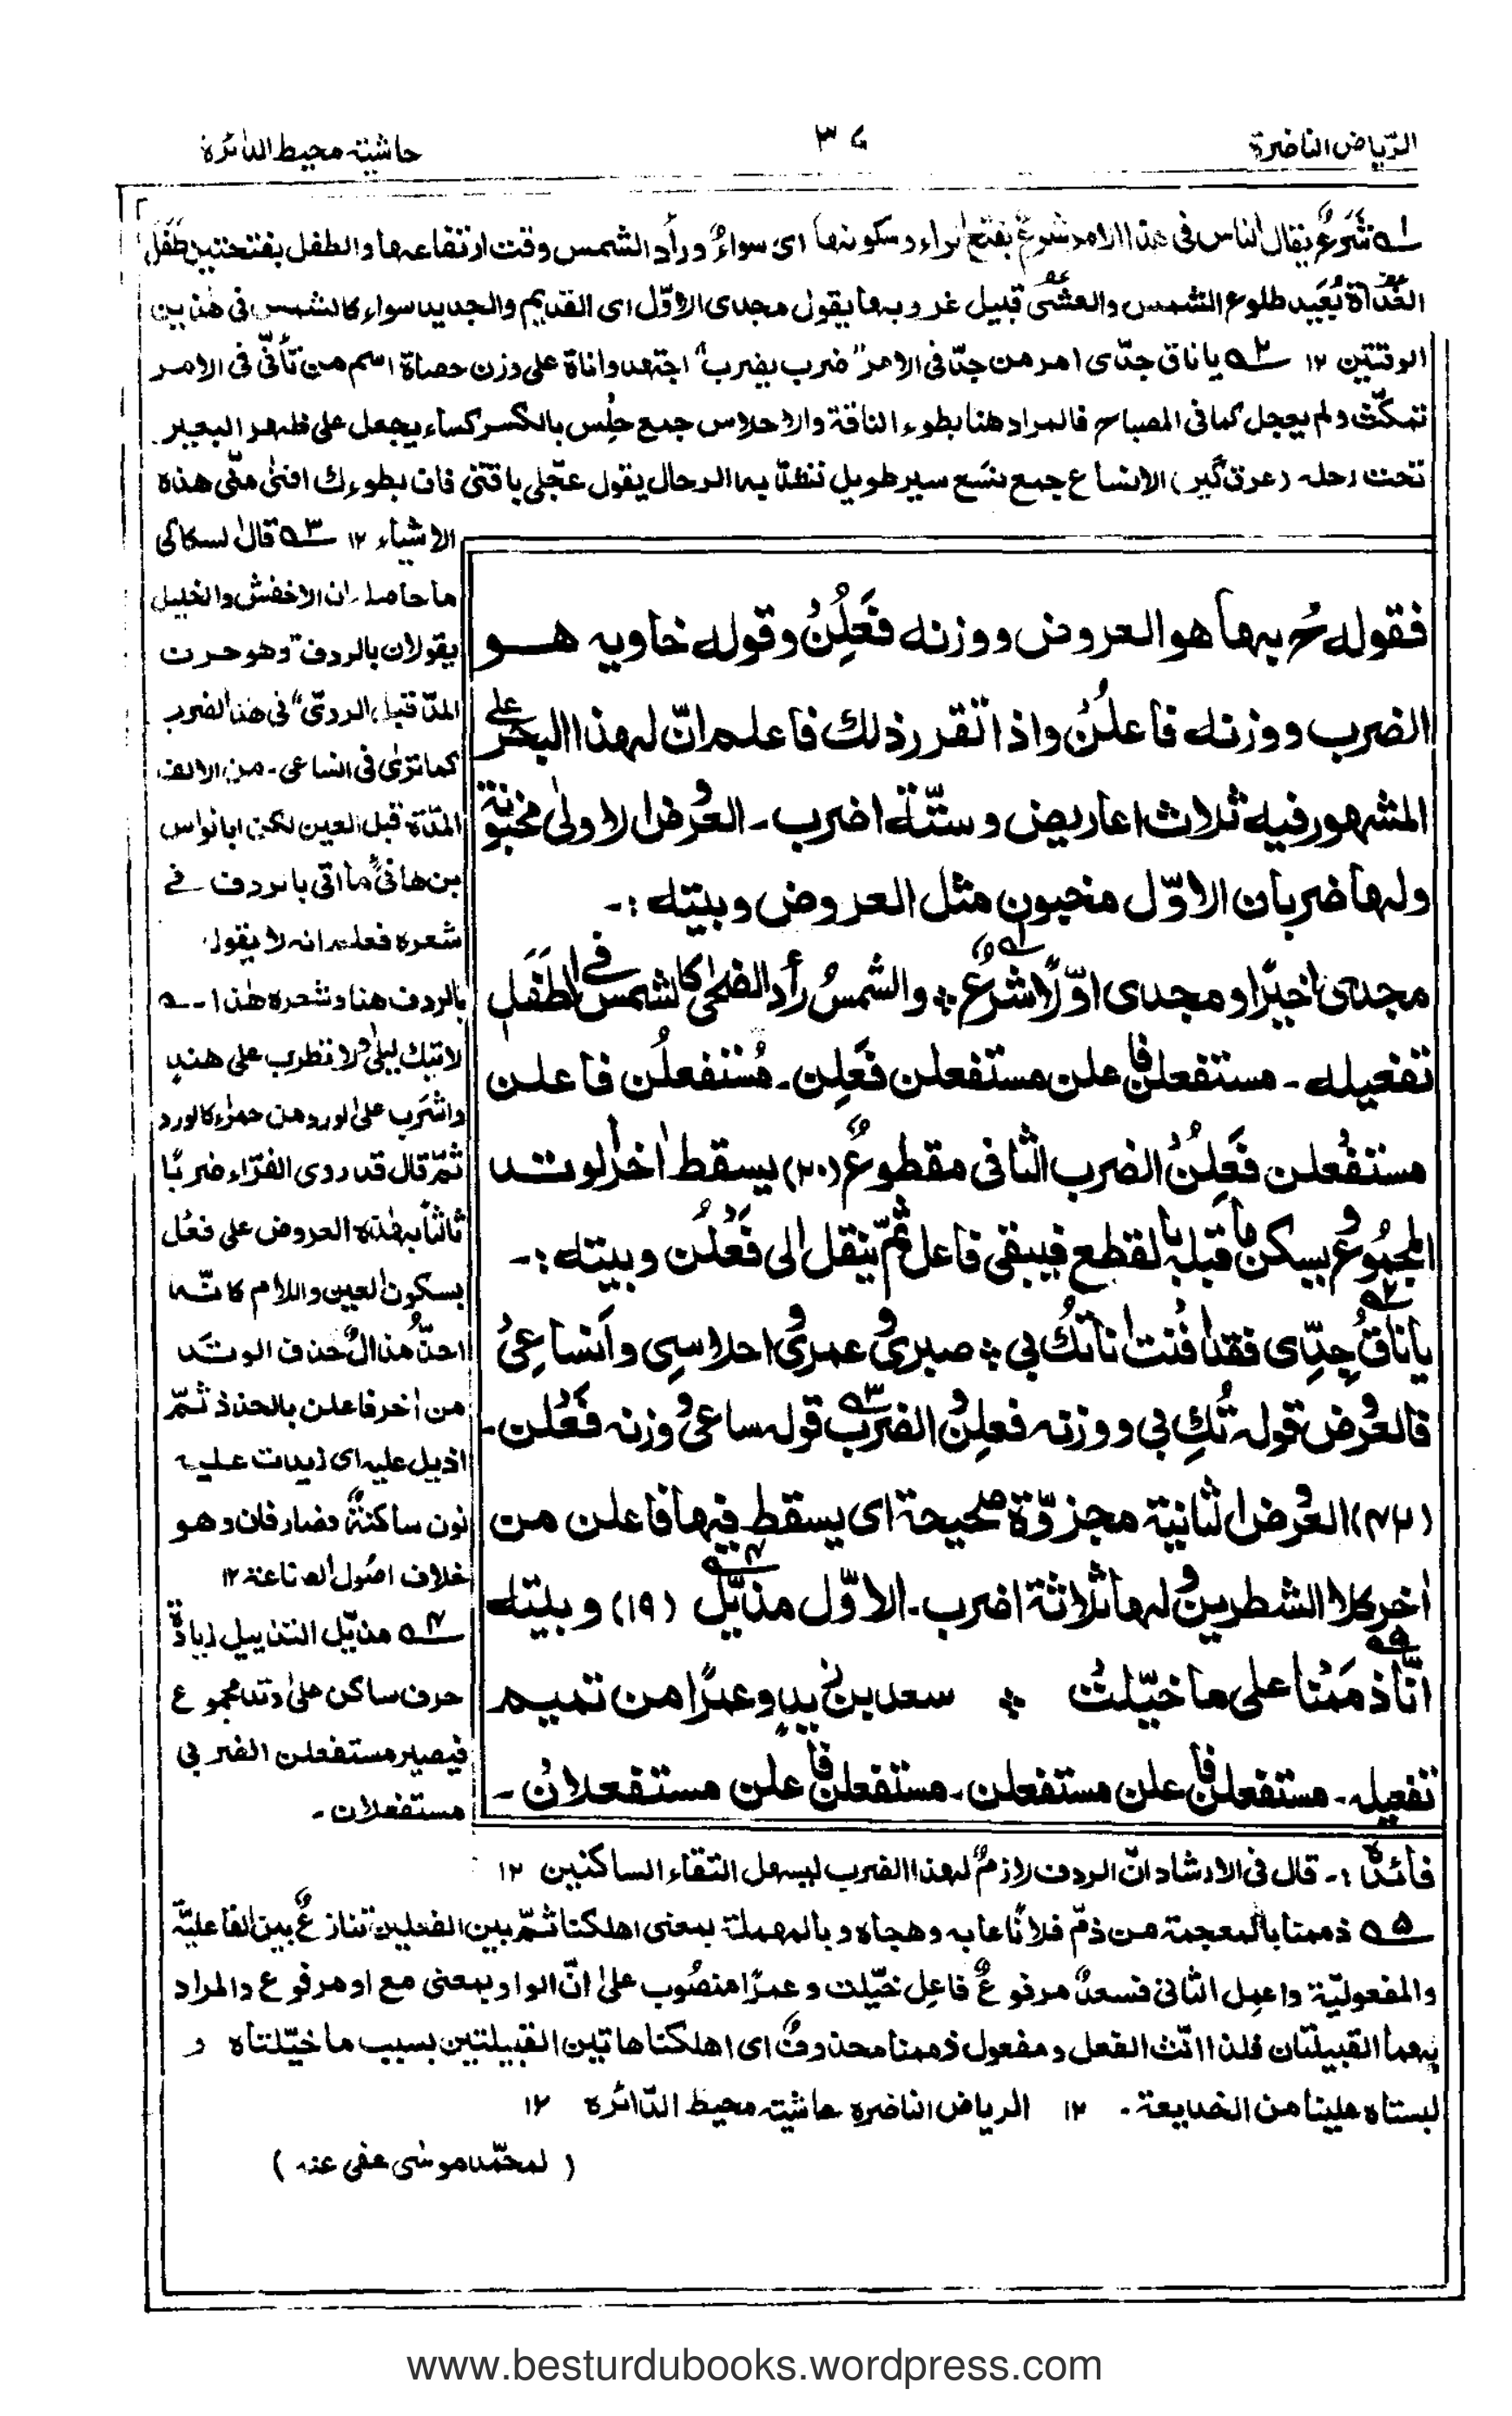 الرّياض الناضرة
٣٧
حاشيته محيط الدائرة
١ شَرَعٌ يقال الناس فى هذا الامر شرعٌ بفتح الراء وسكونها اى سواءٌ ورأد الشمس وقت ارتفاعها والطفل بفتحتين طَفَل
الغَداة بُعَيد طلوع الشمس والعشى قبيل غروبها يقول مجدى الاوّل اى القديم والجديد سواء كالشمس فى هٰذين
الوقتين ١٢ ٢ يا ناق جدّى امر من جدّ فى الامر "ضرب يضرب" اجتهد واناة على وزن حصاة اسم من تأنّى فى الامر
تمكّث ولم يعجل كما فى المصباح فالمراد هنا بطوء الناقة والاحلاس جمع حِلْس بالكسر كساء يجعل على ظهر البعير
تحت رحله (عرق گير) الانساع جمع نسع سير طويل تشدّ به الرحال يقول عجّلى يا قتى فان بطوءك افنىٰ منّى هذه
الاشياء ١٢ ٣ قال السكاكى
ما حاصله ان الاخفش والخليل
يقولان بالردف "وهو حرف
المدّ قبل الروىّ" فى هذا الضرب
كما ترىٰ فى الساعى۔ من الالف
المدّة قبل العين لكن ابا نواس
بن هانئ ما اتى بالردف فے
شعره فعلم انه لا يقول
بالردف هنا وشعره هٰذا ۔
لا تبك ليلىٰ ولا تطرب على هند
واشرب على الورد من حمراء كالورد
ثمّ قال قد روى الفرّاء ضربًا
ثالثًا بهٰذه العروض على فعْل
بسكون العين واللام كانّه
احذّ هذا لٌ حذف الوتد
من اٰخر فاعلن بالحذذ ثمّ
اذيل عليه اى زيدت عليه
نون ساكنةٌ فصار فان وهو
خلاف اصول الصناعة ١٢
٤ مذيّل التذييل زيادة
حرف ساكن علىٰ وتد مجموع
فيصير مستفعلن الضربى
مستفعلان۔
فقوله حُ بها هو العروض ووزنه فَعَلِنُ وقوله خاويه هو
الضرب ووزنه فاعلُنْ واذا تقرر ذلك فاعلم انّ لهذا البحر على
المشهور فيه ثلاث اعاريض وستّة اضرب۔ العروض الاولىٰ مخبونة
ولها ضربان الاوّل مخبون مثل العروض وبيته :۔
مجدى اخيرًا ومجدى اوّلًا شرعٌ ؞ والشمسُ رأد الضحىٰ كالشمس فے الطَفَلِ
تفعيله ۔ مستفعلن فاعلن مستفعلن فَعَلِن۔ مُستفعلُن فاعلن
مستفعلن فَعَلِنُ الضرب الثانى مقطوعٌ (٢٠) يسقط اٰخر الوتد
المجموع ويسكن ما قبله بالقطع فيبقى فاعل ثمّ ينقل الى فَعْلُن وبيته :۔
يا ناقُ جِدّى فقد افنت اناتك بى ؞ صبرى وعمرى واحلاسى وانساعِىْ
فالعروض قوله تُكِ بى ووزنه فعلن والضرب قوله ساعى ووزنه فَعْلن۔
(٢٣) العروض الثانية مجزوّة صحيحة اى يسقط فيها فاعلن من
اٰخر كلا الشطرين ولها ثلاثة اضرب۔ الاوّل مذيّل (١٩) وبيته
انّا ذممنا على ما خيّلتْ ؞ سعد بن زيد وعمرًا من تميم
تفعيله ۔ مستفعلن فاعلن مستفعلن۔ مستفعلن فاعلن مستفعلانْ ۔
فائدة :۔ قال فى الارشاد انّ الردف لازمٌ لهذا الضرب ليسهل التقاء الساكنين ١٢
٥ ذممنا بالمعجمة من ذمّ فلانًا عابه وهجاه وبالمهملة بمعنى اهلكنا ثمّ بين الفعلين تنازعٌ بين الفاعليّة
والمفعوليّة واعمل الثانى فسعدٌ مرفوعٌ فاعِل خيّلت وعمرًا منصوب علىٰ انّ الواو بمعنى مع او مرفوع والمراد
بهما القبيلتان فلذا انّث الفعل ومفعول ذممنا محذوفٌ اى اهلكنا هاتين القبيلتين بسبب ما خيّلتاه و
لبستاه علينا من الخديعة۔ ١٢ الرياض الناضره حاشيته محيط الدّائره ١٢
( لمحمّد موسٰى عفى عنه )
www.besturdubooks.wordpress.com